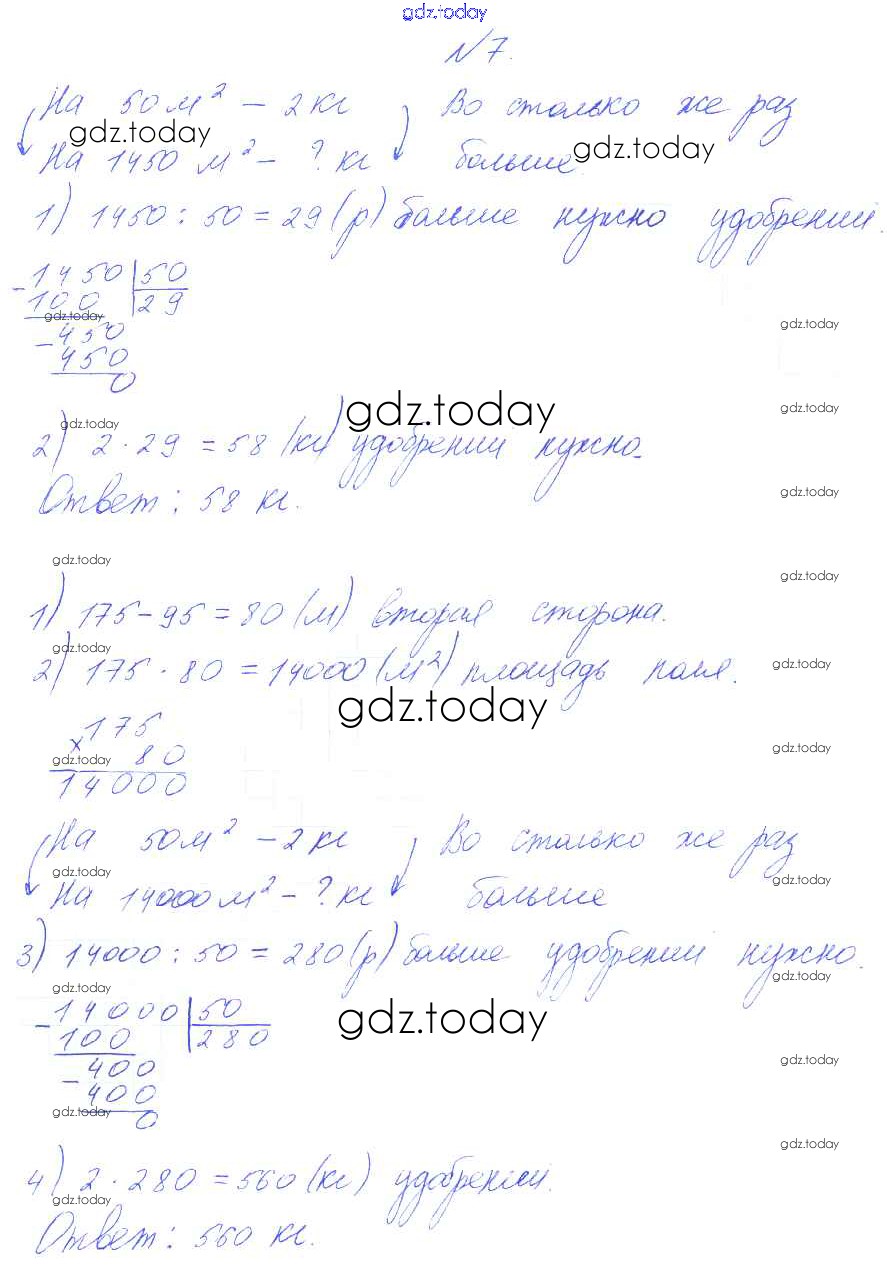 gdz.today
№7.
На 50 м² – 2 кг Во столько же раз
gdz.today
На 1450 м² – ? кг больше. gdz.today
1) 1450 : 50 = 29 (р) больше нужно удобрений.
- 1450 | 50
100 | 29
gdz.today
- 450
gdz.today
450
0
gdz.today
gdz.today
gdz.today
2) 2 · 29 = 58 (кг) удобрений нужно.
Ответ: 58 кг.
gdz.today
gdz.today
gdz.today
1) 175 – 95 = 80 (м) вторая сторона.
gdz.today
2) 175 · 80 = 14000 (м²) площадь поля.
gdz.today
gdz.today
× 175
gdz.today
80
gdz.today
14000
На 50 м² – 2 кг Во столько же раз
gdz.today
gdz.today
На 14000 м² – ? кг больше
3) 14000 : 50 = 280 (р) больше удобрений нужно.
gdz.today
gdz.today
- 14000 | 50
100 | 280
gdz.today
- 400
gdz.today
400
gdz.today
0
gdz.today
4) 2 · 280 = 560 (кг) удобрений.
gdz.today
Ответ: 560 кг.